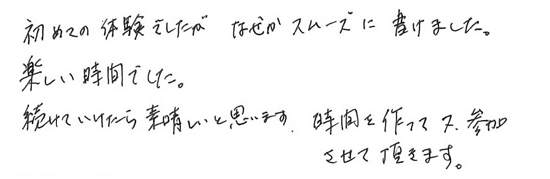 初めての体験でしたが なぜか スムーズに 書けました。
楽しい時間でした。
続けていけたら素晴しいと思います. 時間を作って又、参加
させて頂きます。